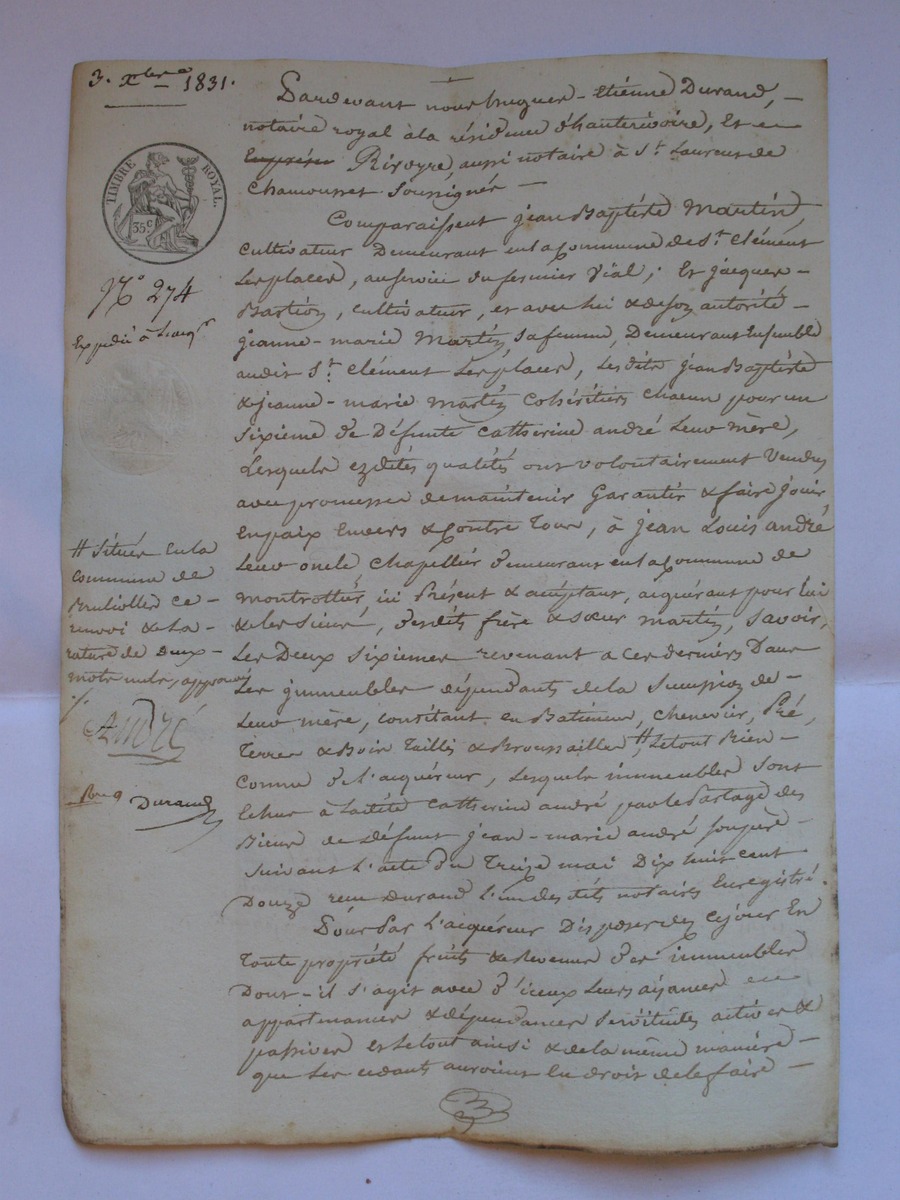 3. Xbre 1831.
TIMBRE ROYAL.
35 c
No 274
Expédié à l'acqr
Pardevant nous hugues-Etiénne Durand,
notaire royal à la résidence d'hauterivoire, Et
Rivoyre, aussi notaire à St. Laurent de
Chamousset Soussignés
Comparaissent jean Baptiste Martin,
cultivateur Demeurant en la Commune de St. Clément
Les places, au service du fermier Vial; Et jacques
Bastion, cultivateur, et avec lui & de son autorité
jeanne-marie Martin, sa femme, Demeurant Ensemble
audit St. Clément Les places, Les dits jean Baptiste
& jeanne-marie Martin Cohéritiers chacun pour un
sixieme de Défunte Catherine andré Leur mère,
Lesquels ezdites qualités ont volontairement Vendu
avec promesse de maintenir Garantir & faire jouir
En paix Envers & Contre Tous, à jean Louis andré
Leur oncle chapellier demeurant en la Commune de
montrottier, ici Présent & acceptant, aiquérant pour lui
& les siens, desdits frère & sœur martin, savoir,
Les Deux sixiemes revenant a ces derniers Dans
Les jmmeubles dépendants de la succession de
Leur mère, consistant en Batiment, chenevier, Pré,
Terres & Bois Taillis & Broussailles, # Le tout Bien
Connu de L'aiquéreur, Lesquels immeubles sont
Echus à Ladite Catherine andré par le Partage des
Biens de défunt jean-marie andré son père
suivant L'acte du Treize mai Dix huit cent
Douze reçu Durand L'un des dits notaires Enregistré.
Pour Par L'aiquéreur Disposer dez ce jour En
Toute propriété fruits & Revenus des immeubles
Dont-il s'agit avec d'iceux Leurs aisances
appartenances & dépendances Servitudes actives &
passives et le tout ainsi & de la même manière
que Les cédants auroient Eu droit de le faire
# Situés en la
Commune de
Brullioles ce
renvoi & la
rature de deux
mots nuls, approuvés
André
Durand